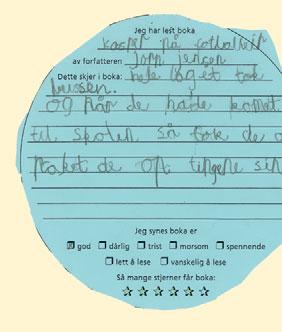 Jeg har lest boka
kasper på fotballeir
av forfatteren jørn jensen
Dette skjer i boka: hele laget tok
bussen.
og når de hade komet
til skolen så tok de o
pakket de opp tingene sin
Jeg synes boka er
god dårlig trist morsom spennende
lett å lese vanskelig å lese
Så mange stjerner får boka: